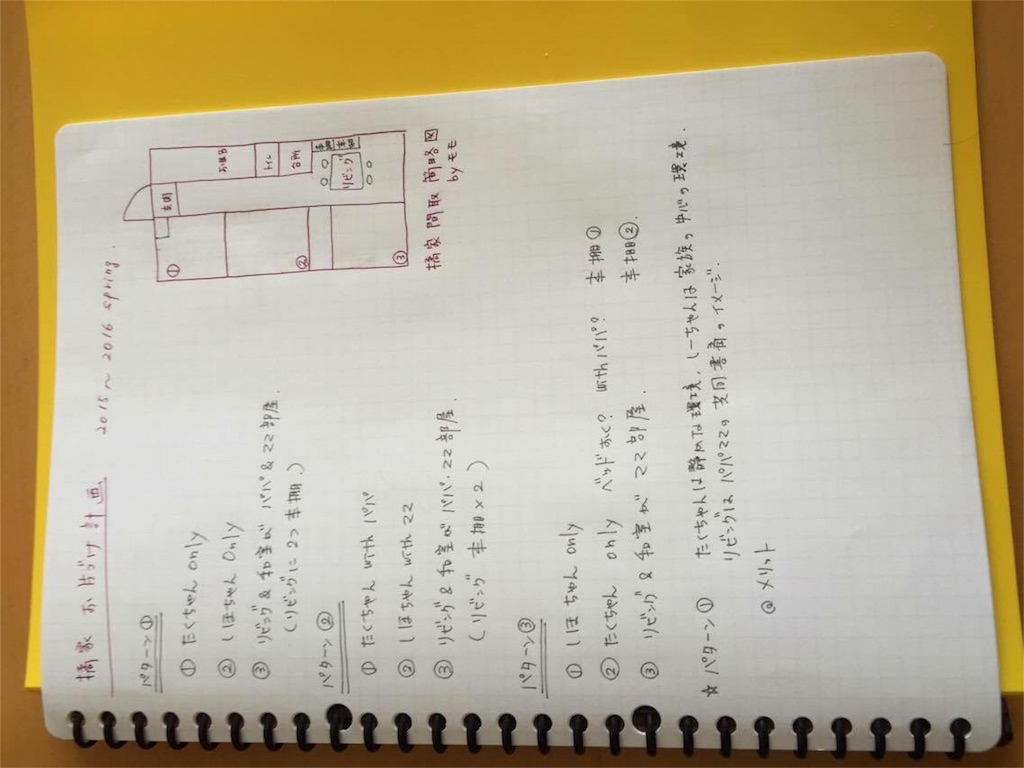 橘家 お片づけ計画 2015〜2016 spring.
パターン①
① たくちゃん only
② しほちゃん only
③ リビング & 和室が パパ & ママ部屋
(リビングに2つ本棚.)
パターン②
① たくちゃん with パパ
② しほちゃん with ママ
③ リビング & 和室が パパ・ママ部屋.
(リビング 本棚×2)
パターン③
① しほちゃん only
② たくちゃん only ベッドおく? with パパ? 本棚①
③ リビング & 和室が ママ部屋. 本棚②
☆ パターン① たくちゃんは静かな環境, しーちゃんは家族の中心の環境.
リビングは パパママの共同書斎のイメージ.
@ メリット
玄関
お風呂
トイレ
台所
本棚
本棚
リビング
①
②
③
橘家 間取 簡略図
by モモ